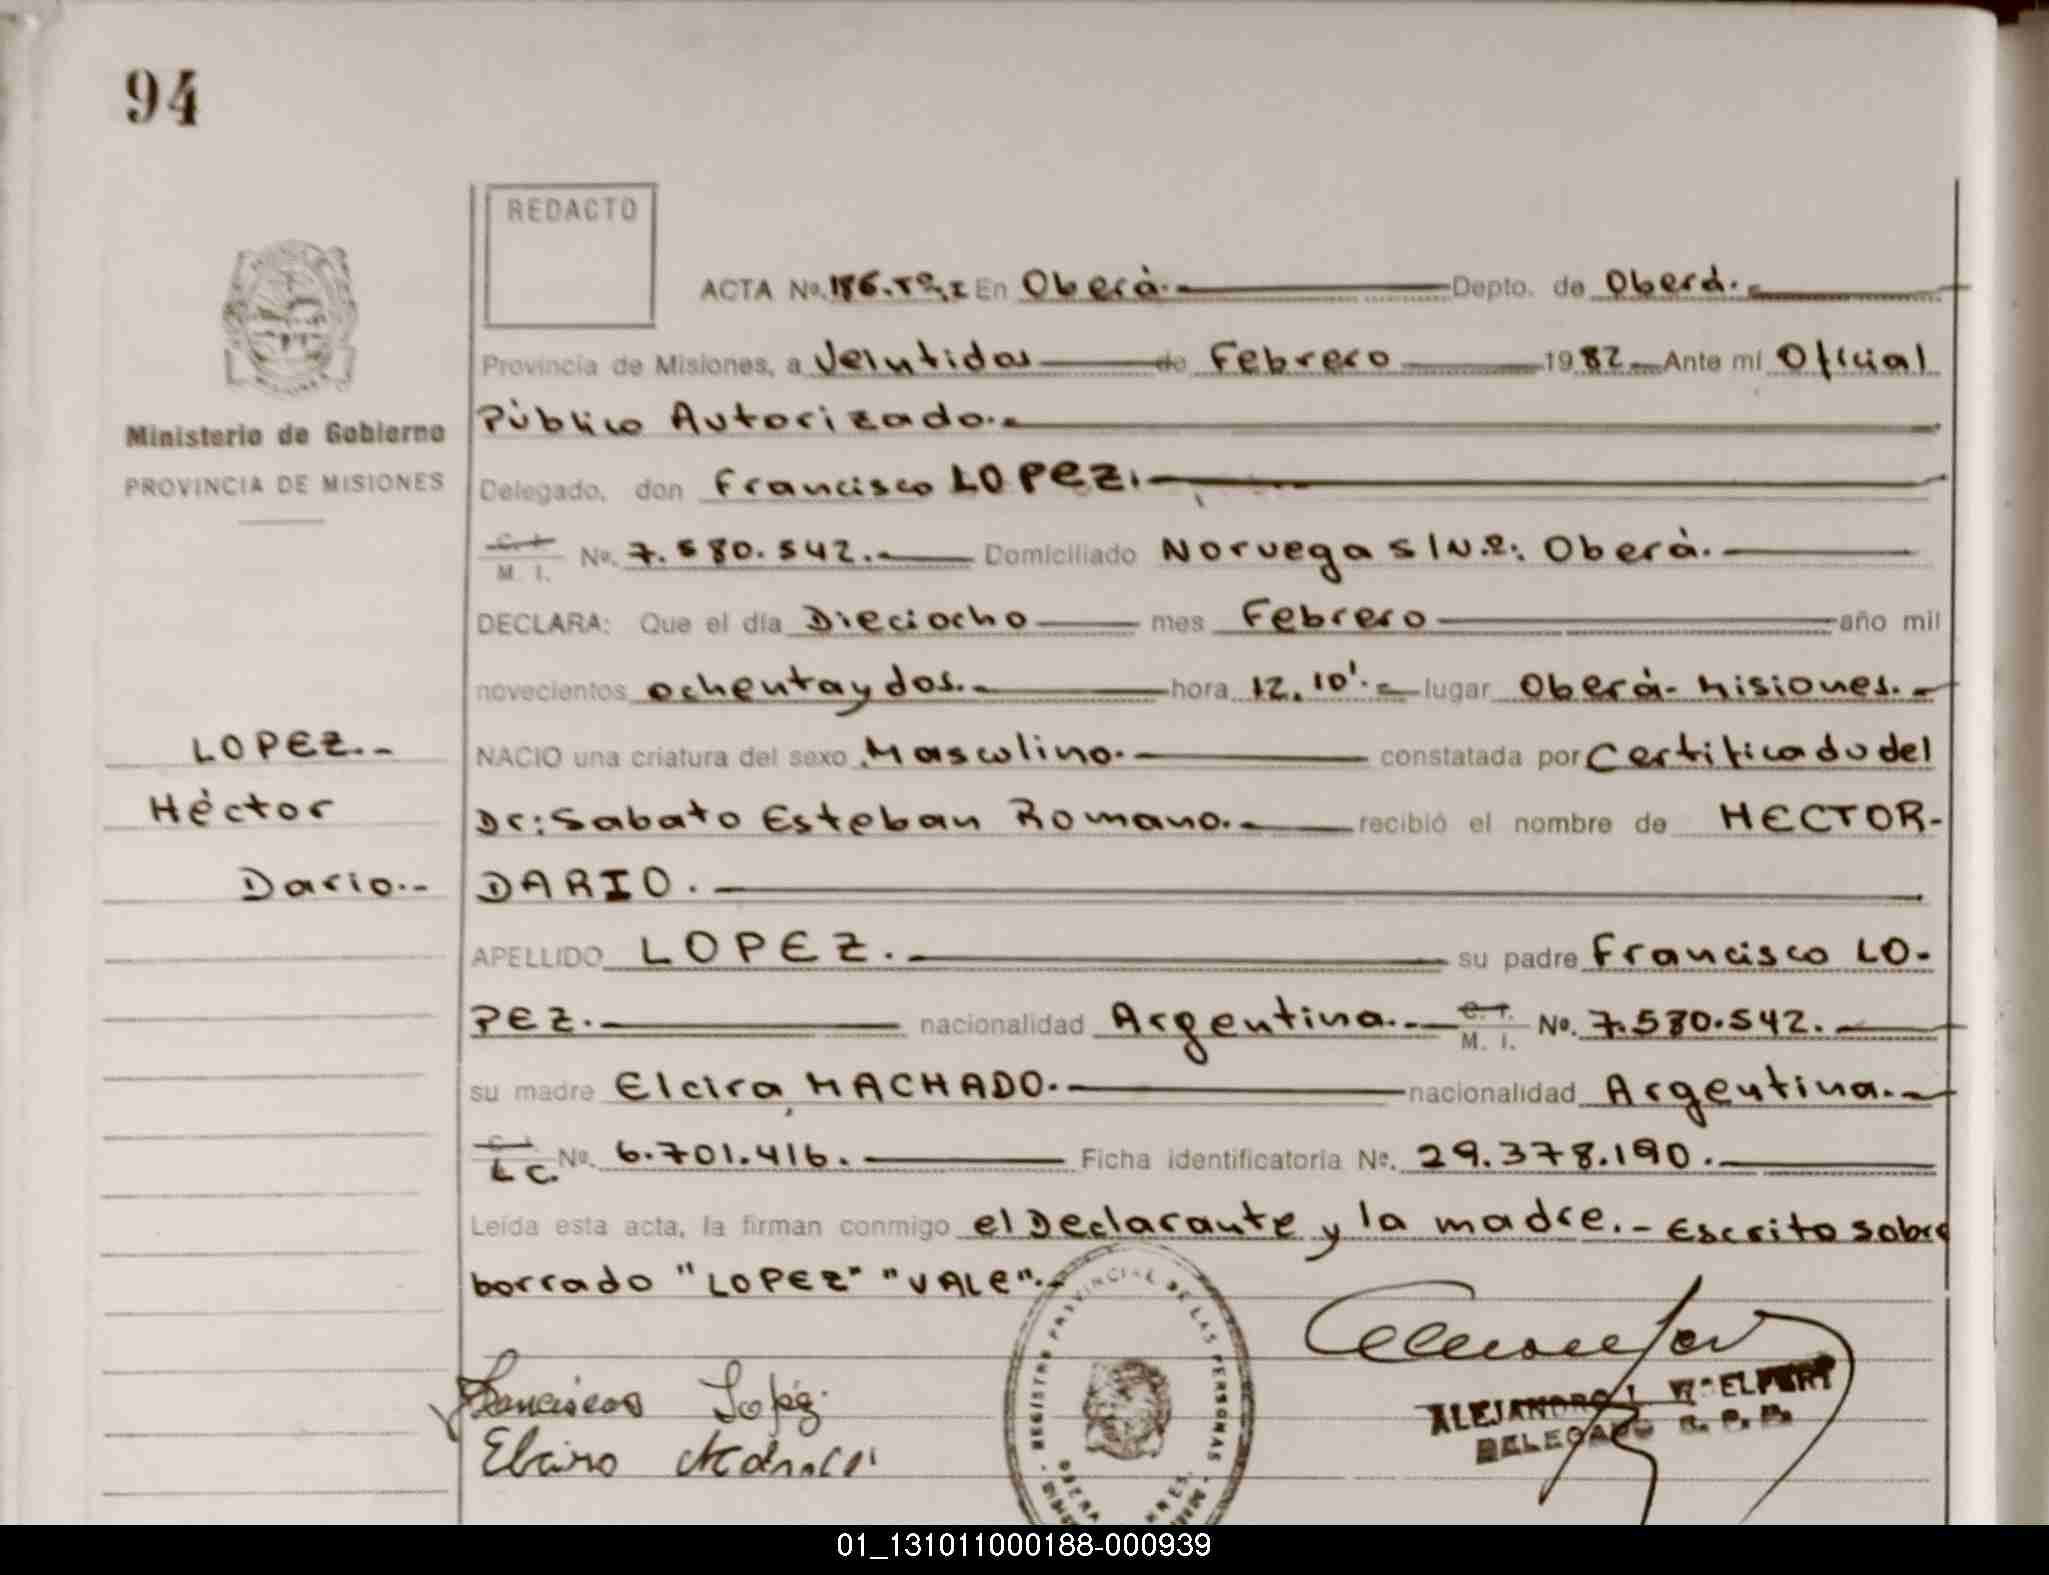 94
REDACTO
ACTA No. 186. Tº. I En Oberà. Depto. de Oberá.
Provincia de Misiones, a Veintidos de Febrero 1982 Ante mí Oficial
Pùblico Autorizado.
Ministerio de Gobierno
PROVINCIA DE MISIONES
Delegado, don Francisco LOPEZ.
C. I. M. I. No. 7.580.542. Domiciliado Noruega S/N.º: Oberà.
DECLARA: Que el día Dieciocho mes Febrero año mil
novecientos ochenta y dos. hora 12.10'. lugar Oberà- Misiones.
LOPEZ.-
NACIO una criatura del sexo Masculino. constatada por Certificado del
Hèctor
Dr: Sabato Esteban Romano. recibió el nombre de HECTOR-
Dario.-
DARIO.
APELLIDO LOPEZ. su padre Francisco LO-
PEZ. nacionalidad Argentina. C. I. M. I. No. 7.580.542.
su madre Elcira MACHADO. nacionalidad Argentina.
C. I. L C. No. 6.701.416. Ficha identificatoria No. 29.378.190.
Leída esta acta, la firman conmigo el Declarante y la madre.- Escrito sobre
borrado "LOPEZ" "VALE".
REGISTRO PROVINCIAL DE LAS PERSONAS
OBERA
Francisco López
ALEJANDRO
DELEGADO R. P. P.
01_131011000188-000939